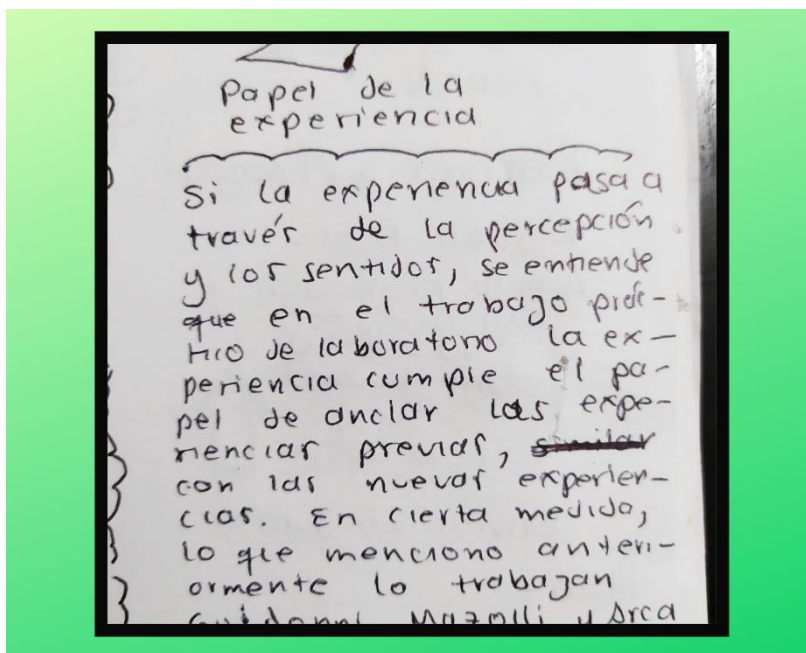 Papel de la
experiencia
Si la experiencia pasa a
través de la percepción
y los sentidos, se entiende
que en el trabajo prác-
tico de laboratorio la ex-
periencia cumple el pa-
pel de anclar las expe-
riencias previas, similar
con las nuevas experien-
cias. En cierta medida,
lo que menciono anteri-
ormente lo trabajan
Guidonni Mazolli y Arca